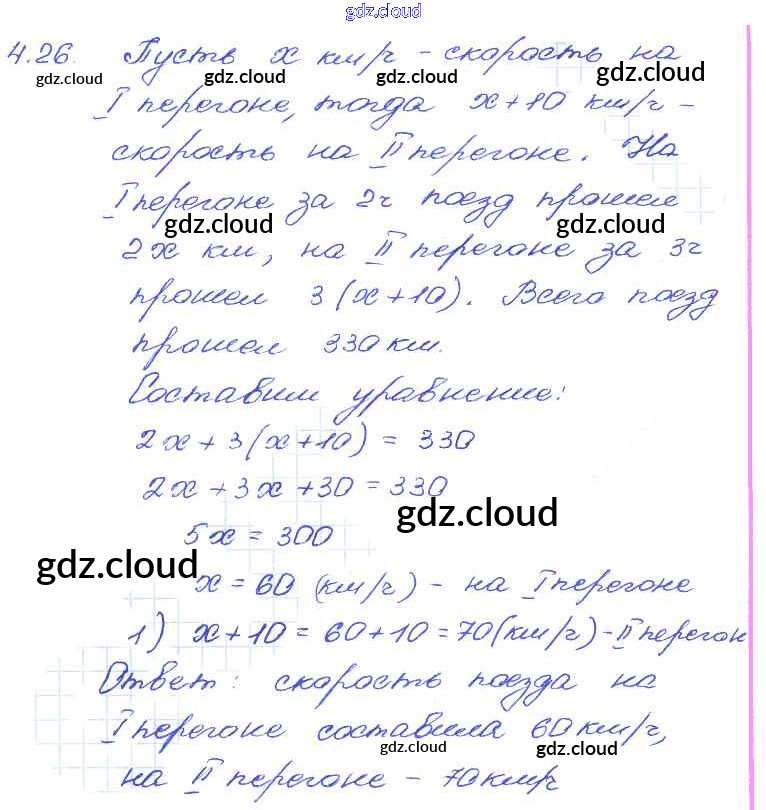 gdz.cloud
4.26. Пусть x км/ч - скорость на
gdz.cloud gdz.cloud gdz.cloud
I перегоне, тогда x+10 км/ч -
скорость на II перегоне. На
I перегоне за 2ч поезд прошел
gdz.cloud gdz.cloud
2x км, на II перегоне за 3ч
прошел 3(x+10). Всего поезд
прошел 330 км.
Составим уравнение:
2x+3(x+10) = 330
2x+3x+30=330
gdz.cloud
5x = 300
gdz.cloud
x = 60 (км/ч) - на I перегоне
1) x+10 = 60+10 = 70(км/ч) - II перегон
Ответ: скорость поезда на
I перегоне составила 60 км/ч,
gdz.cloud gdz.cloud
на II перегоне - 70 км/ч